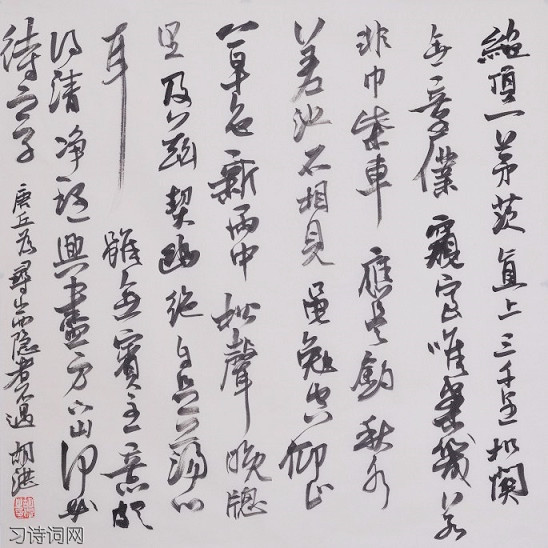 絕頂一茅茨直上三千里扣關
無童僕窺室唯案幾若
非巾柴車應是釣秋水
差池不相見黽勉空仰止
草色新雨中松聲晚窓
里及茲契幽絕自足蕩心
耳雖無賓主意頗
得清净理興盡方下山何必
待之子
唐丘为尋西山隐者不遇 胡湛
习诗词网